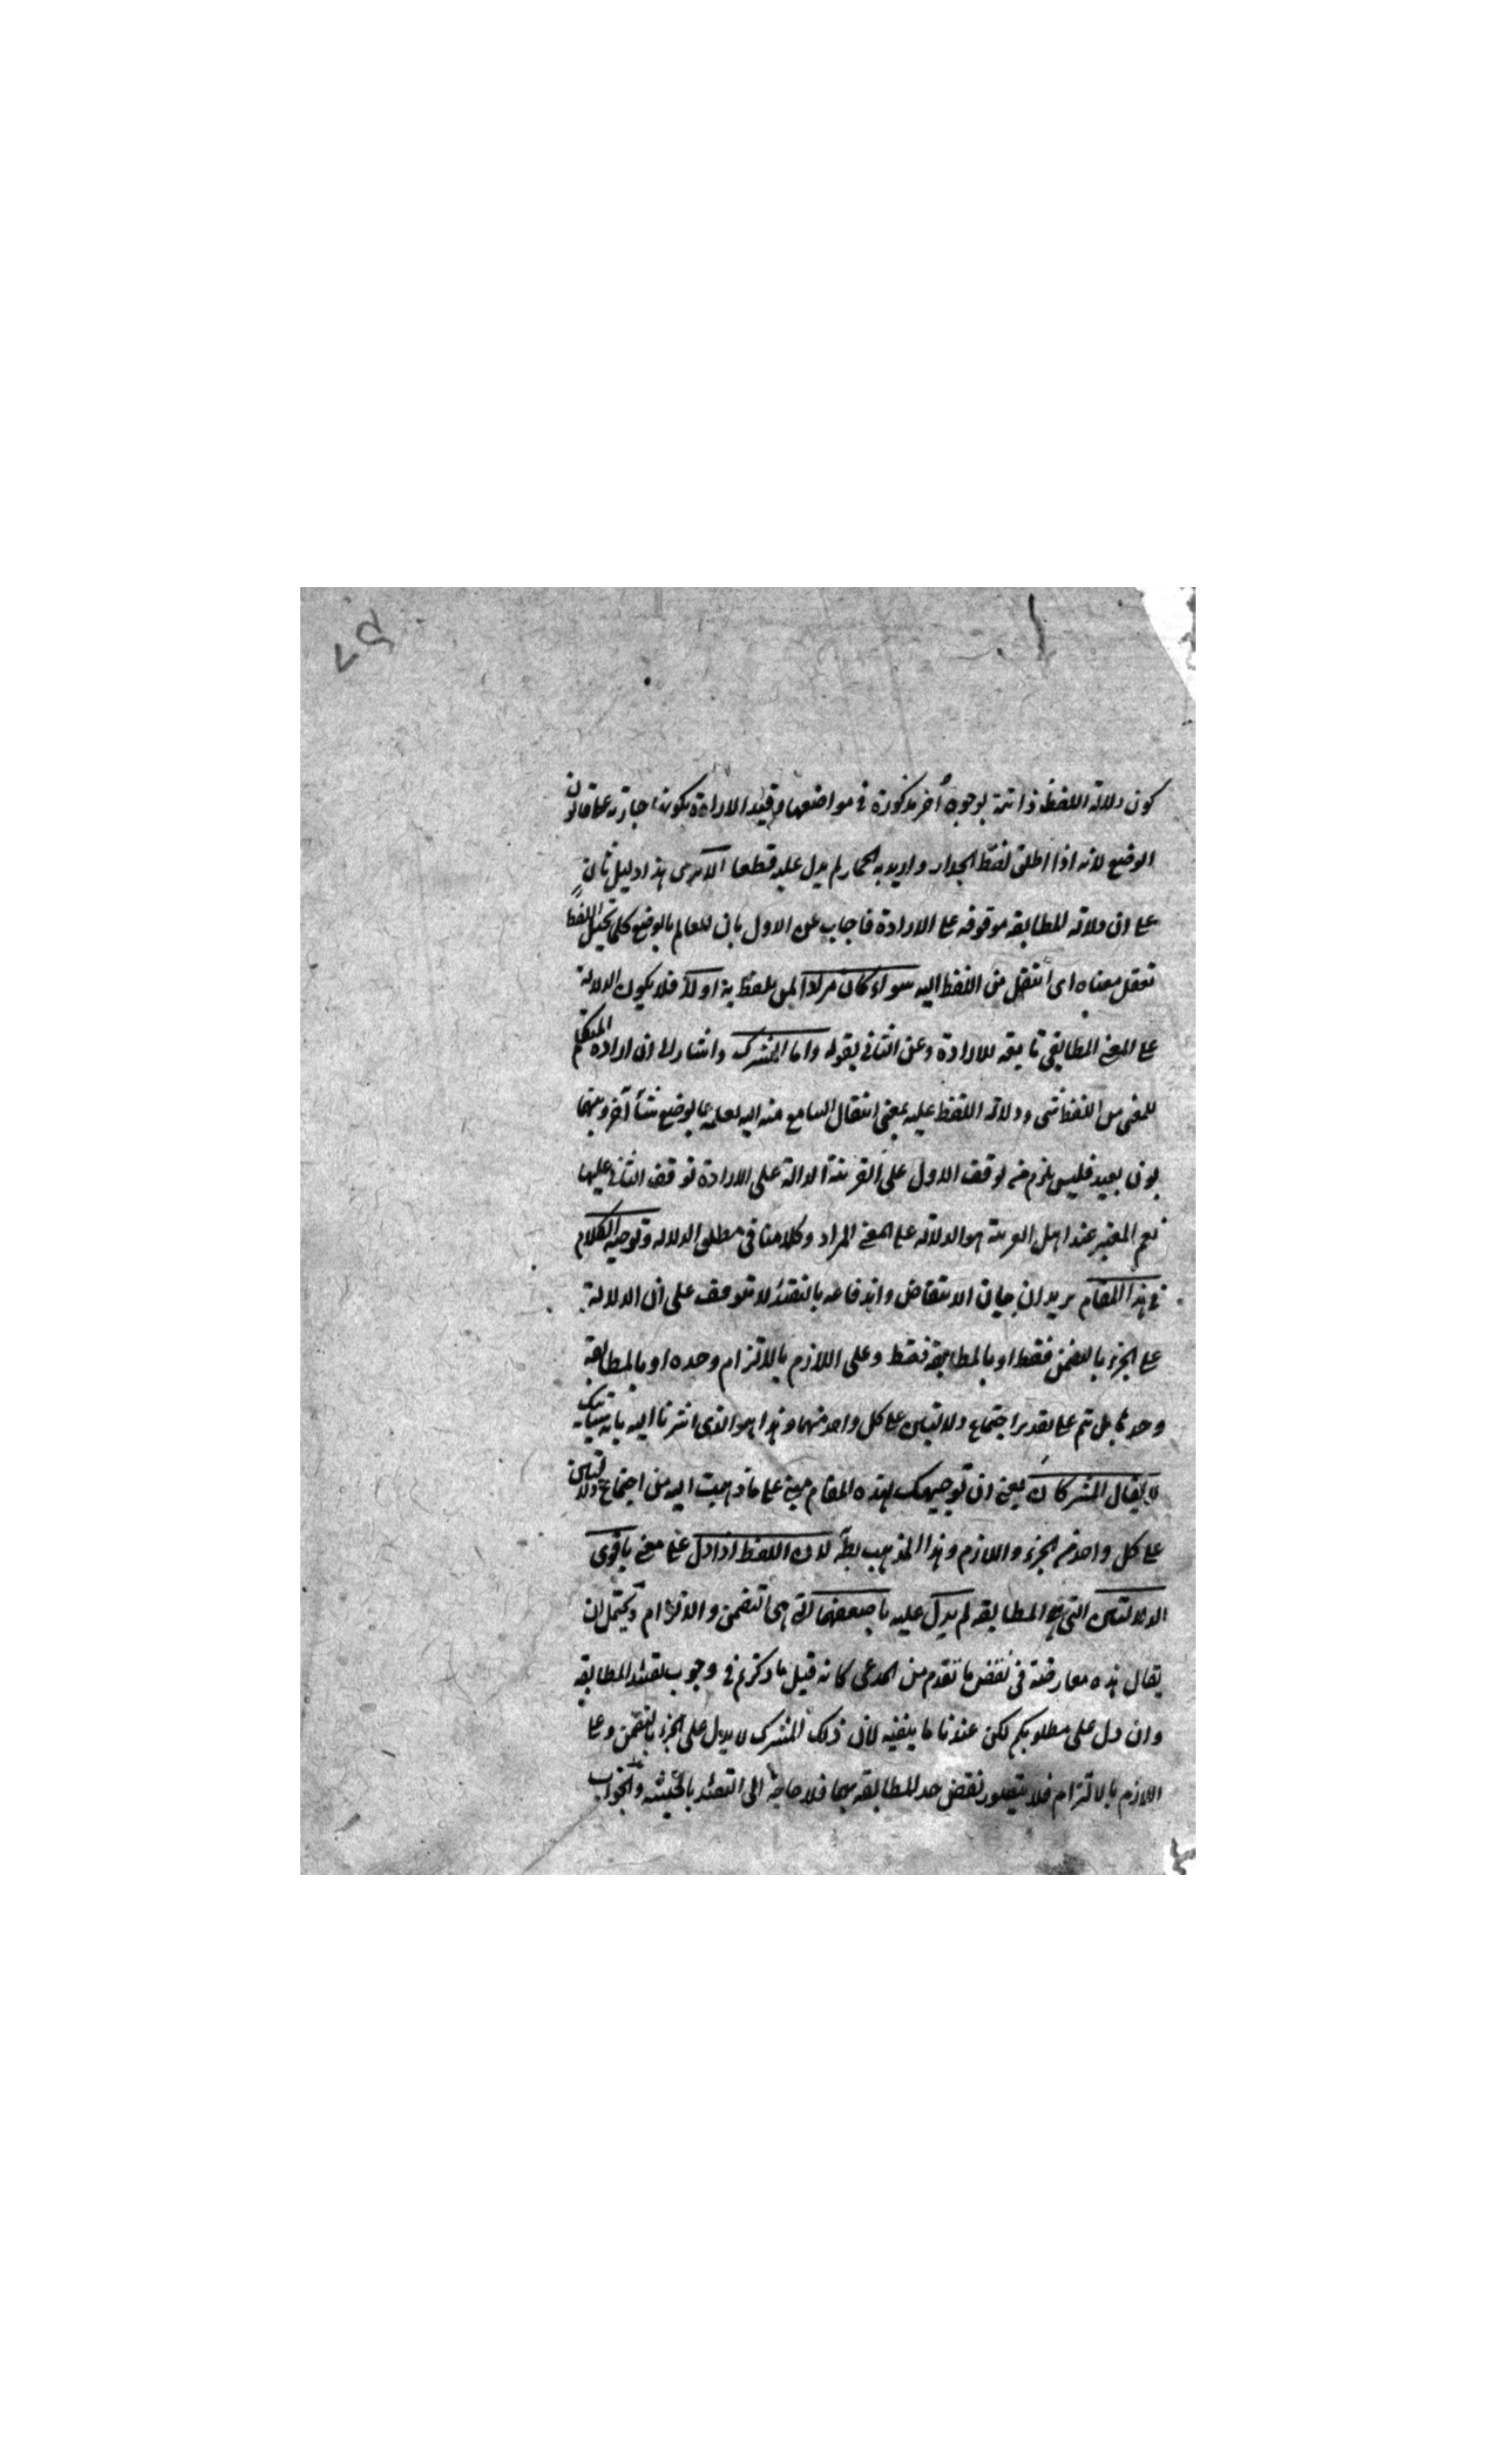 كون دلالة اللفظ ذاتية بوجوه أخر مذكورة في مواضعها وقيد الارادة بكونها جارية على قانون
الوضع لانه اذا اطلق لفظ الجدار واريد به الحمار لم يدل عليه قطعا الا ترى هذا دليل ثان
على ان دلالة المطابقه موقوفه على الارادة فاجاب عن الاول بان العالم بالوضع كلما تخيل اللفظ
تعقل معناه اى انتقل من اللفظ اليه سواء كان مرادا لمن يلفظ به اولا فلا يكون الدلالة
على المعنى المطابقي تابعه للارادة وعن الثاني بقوله واما المشترك واشار الى ان ارادة المتكلم
للمعنى من اللفظ شى ودلالة اللفظ عليه بمعنى انتقال السامع منه اليه لعلمه بالوضع شئ آخر وبينهما
بون بعيد فليس يلزم من توقف الاول على القرينة الدالة على الارادة توقف الثاني عليها
نعم المعتبر عند اهل العربية هو الدلالة على المعنى المراد وكلامنا في مطلق الدلاله وتوجيه الكلام
في هذا المقام يريد ان بيان الانتقاض واندفاعه بالتقييد لا يتوقف على ان الدلالة
على الجزء بالتضمن فقط او بالمطابقة فقط وعلى اللازم بالالتزام وحده او بالمطابقة
وحدها بل تم على تقدير اجتماع دلالتين على كل واحد منهما وهذا هو الذى اشرنا اليه بانه سيأتيك
لا يقال المشترك ان يعنى ان توجيهك لهذه المقام مبنى على ما ذهبت اليه من اجتماع دلالتين
على كل واحد من الجزء واللازم وهذا المذهب بط لان اللفظ اذا دل على معنى باقوى
الدلالتين التى هى المطابقه لم يدل عليه باضعفهما التى هى التضمن والالتزام ويحتمل ان
يقال هذه معارضة في نقض ما تقدم من المدعى كانه قيل ما ذكرتم في وجوب تقييد المطابقه
وان دل على مطلوبكم لكن عندنا ما ينفيه لان ذلك المشترك لا يدل على الجزء بالتضمن وعلى
اللازم بالالتزام فلا يتصور نقض حد المطابقه بهما فلا حاجة الى التقييد بالحيثيه والجواب